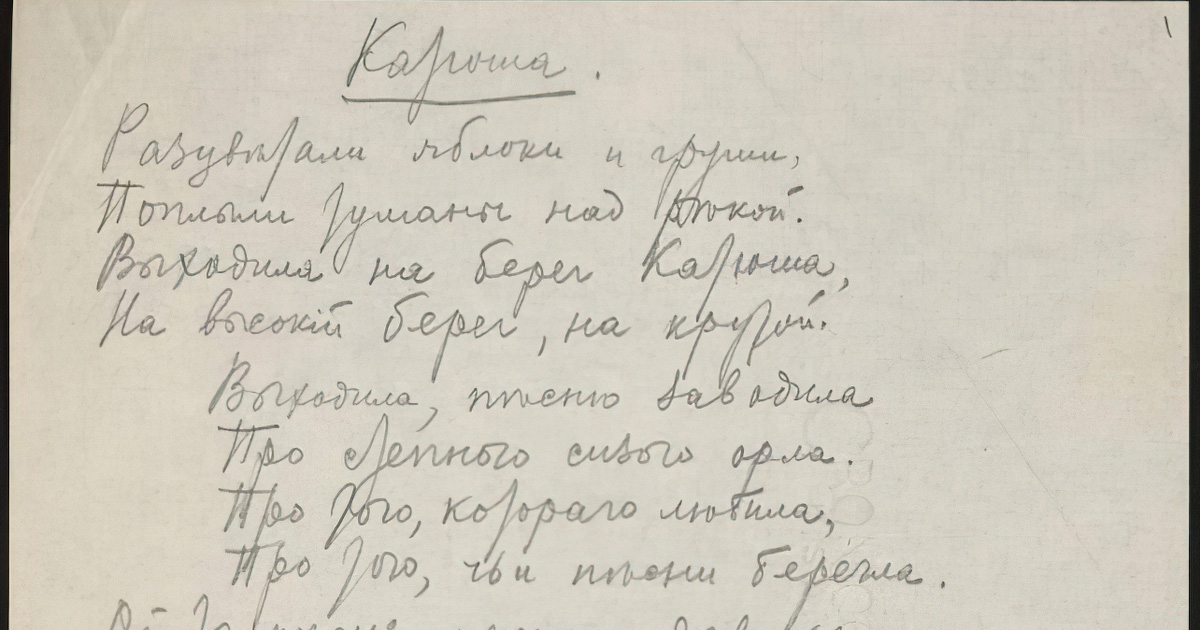 Катюша.
Разцвѣтали яблоки и груши,
Поплыли туманы над рѣкой.
Выходила на берег Катюша,
На высокій берег, на крутой.
Выходила, пѣсню заводила
Про степного сизого орла.
Про того, котораго любила,
Про того, чьи пѣсни берегла.